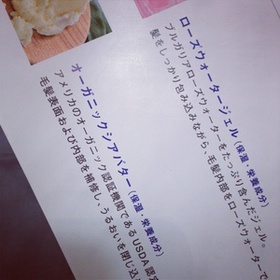 ローズウォータージェル（保湿・栄養成分）
ブルガリアローズウォーターをたっぷり含んだジェル。
髪をしっかり包み込みながら、毛髪内部をローズウォーターで
オーガニックシアバター（保湿・栄養成分）
アメリカのオーガニック認証機関であるUSDA認定
毛髪表面および内部を補修し、うるおいを閉じ込